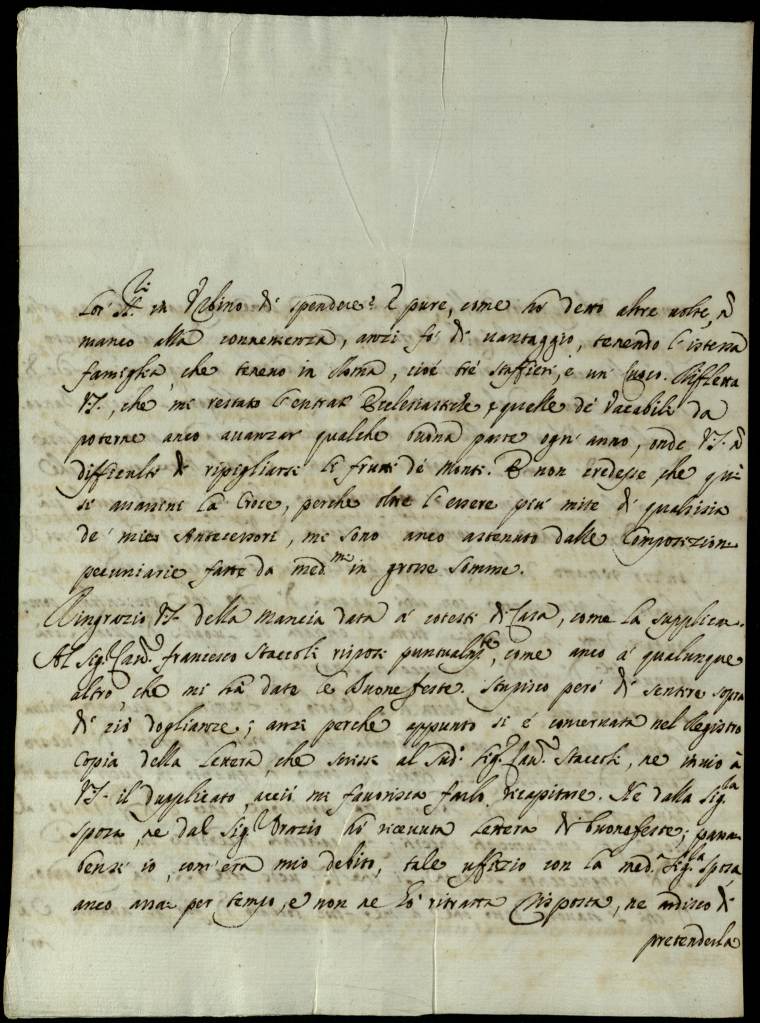 lor SS.ri in Urbino di spendere? E pure, come hò detto altre uolte, ñ
manco alla conuenienza, anzi fò di uantaggio, tenendo l'istessa
famiglia, che teneuo in Roma, cioè trè staffieri, e un Cuoco. Rifletta
V.S., che mi restano l'entrate Ecclesiastiche, e quelle de' Vacabili da
poterne anco auanzar qualche buona parte ogn' anno, onde V.S. ñ
difficulti di ripigliarsi li frutti de' Monti. E non credesse, che quì
si assassini la Croce, perche oltre l'essere più mite di qualsisia
de' miei Antecessori, mi sono anco astenuto dalle Composizioni
pecuniarie fatte da med.mi in grosse somme.
Ringrazio V.S. della mancia data à cotesti di Casa, come la supplicai.
Al Sig.r Cau.r Francesco Staccoli risposi puntualm.te, come anco à qualunque
altro, che mi hà date le Buone feste. Stupisco però di sentire sopra
di ciò doglianze; anzi perche appunto si è conseruata nel Registro
Copia della Lettera, che scrissi al sud.o Sig.r Cau.r Staccoli, ne inuio à
V.S. il Dupplicato, acciò mi fauorisca farlo ricapitare. Ne dalla Sig.ra
sposa, ne dal Sig.r Orazio hò riceuuta Lettera di buone feste; passai
bensì io, com'era mio debito, tale uffizio con la med.a Sig.ra sposa
anco assai per tempo, e non ne hò ritratta risposta, ne ardisco di
pretenderla